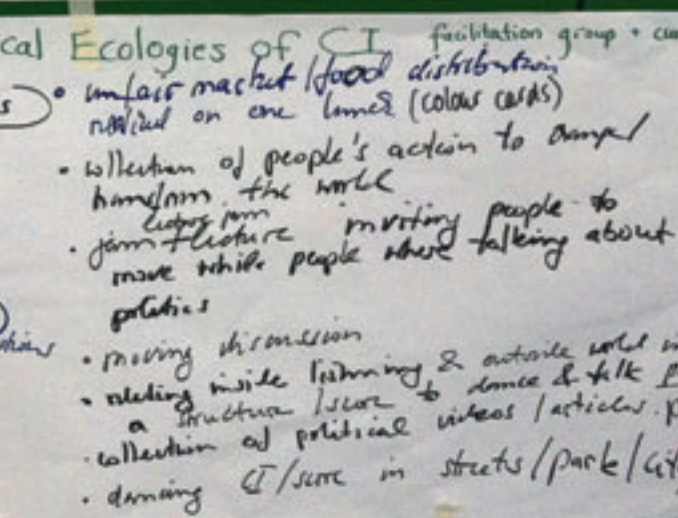 cal Ecologies of CI facilitation group +
s • unfair market / food distribution
on one (colour cards)
• collection of people's action to
transform the world
lecture jam
• jam + lecture inviting people to
move while people where talking about
politics
• moving discussion
• relating inside listening & outside world
a structure / score to dance & talk
• collection of political videos / articles.
• dancing CI / score in streets / park / city